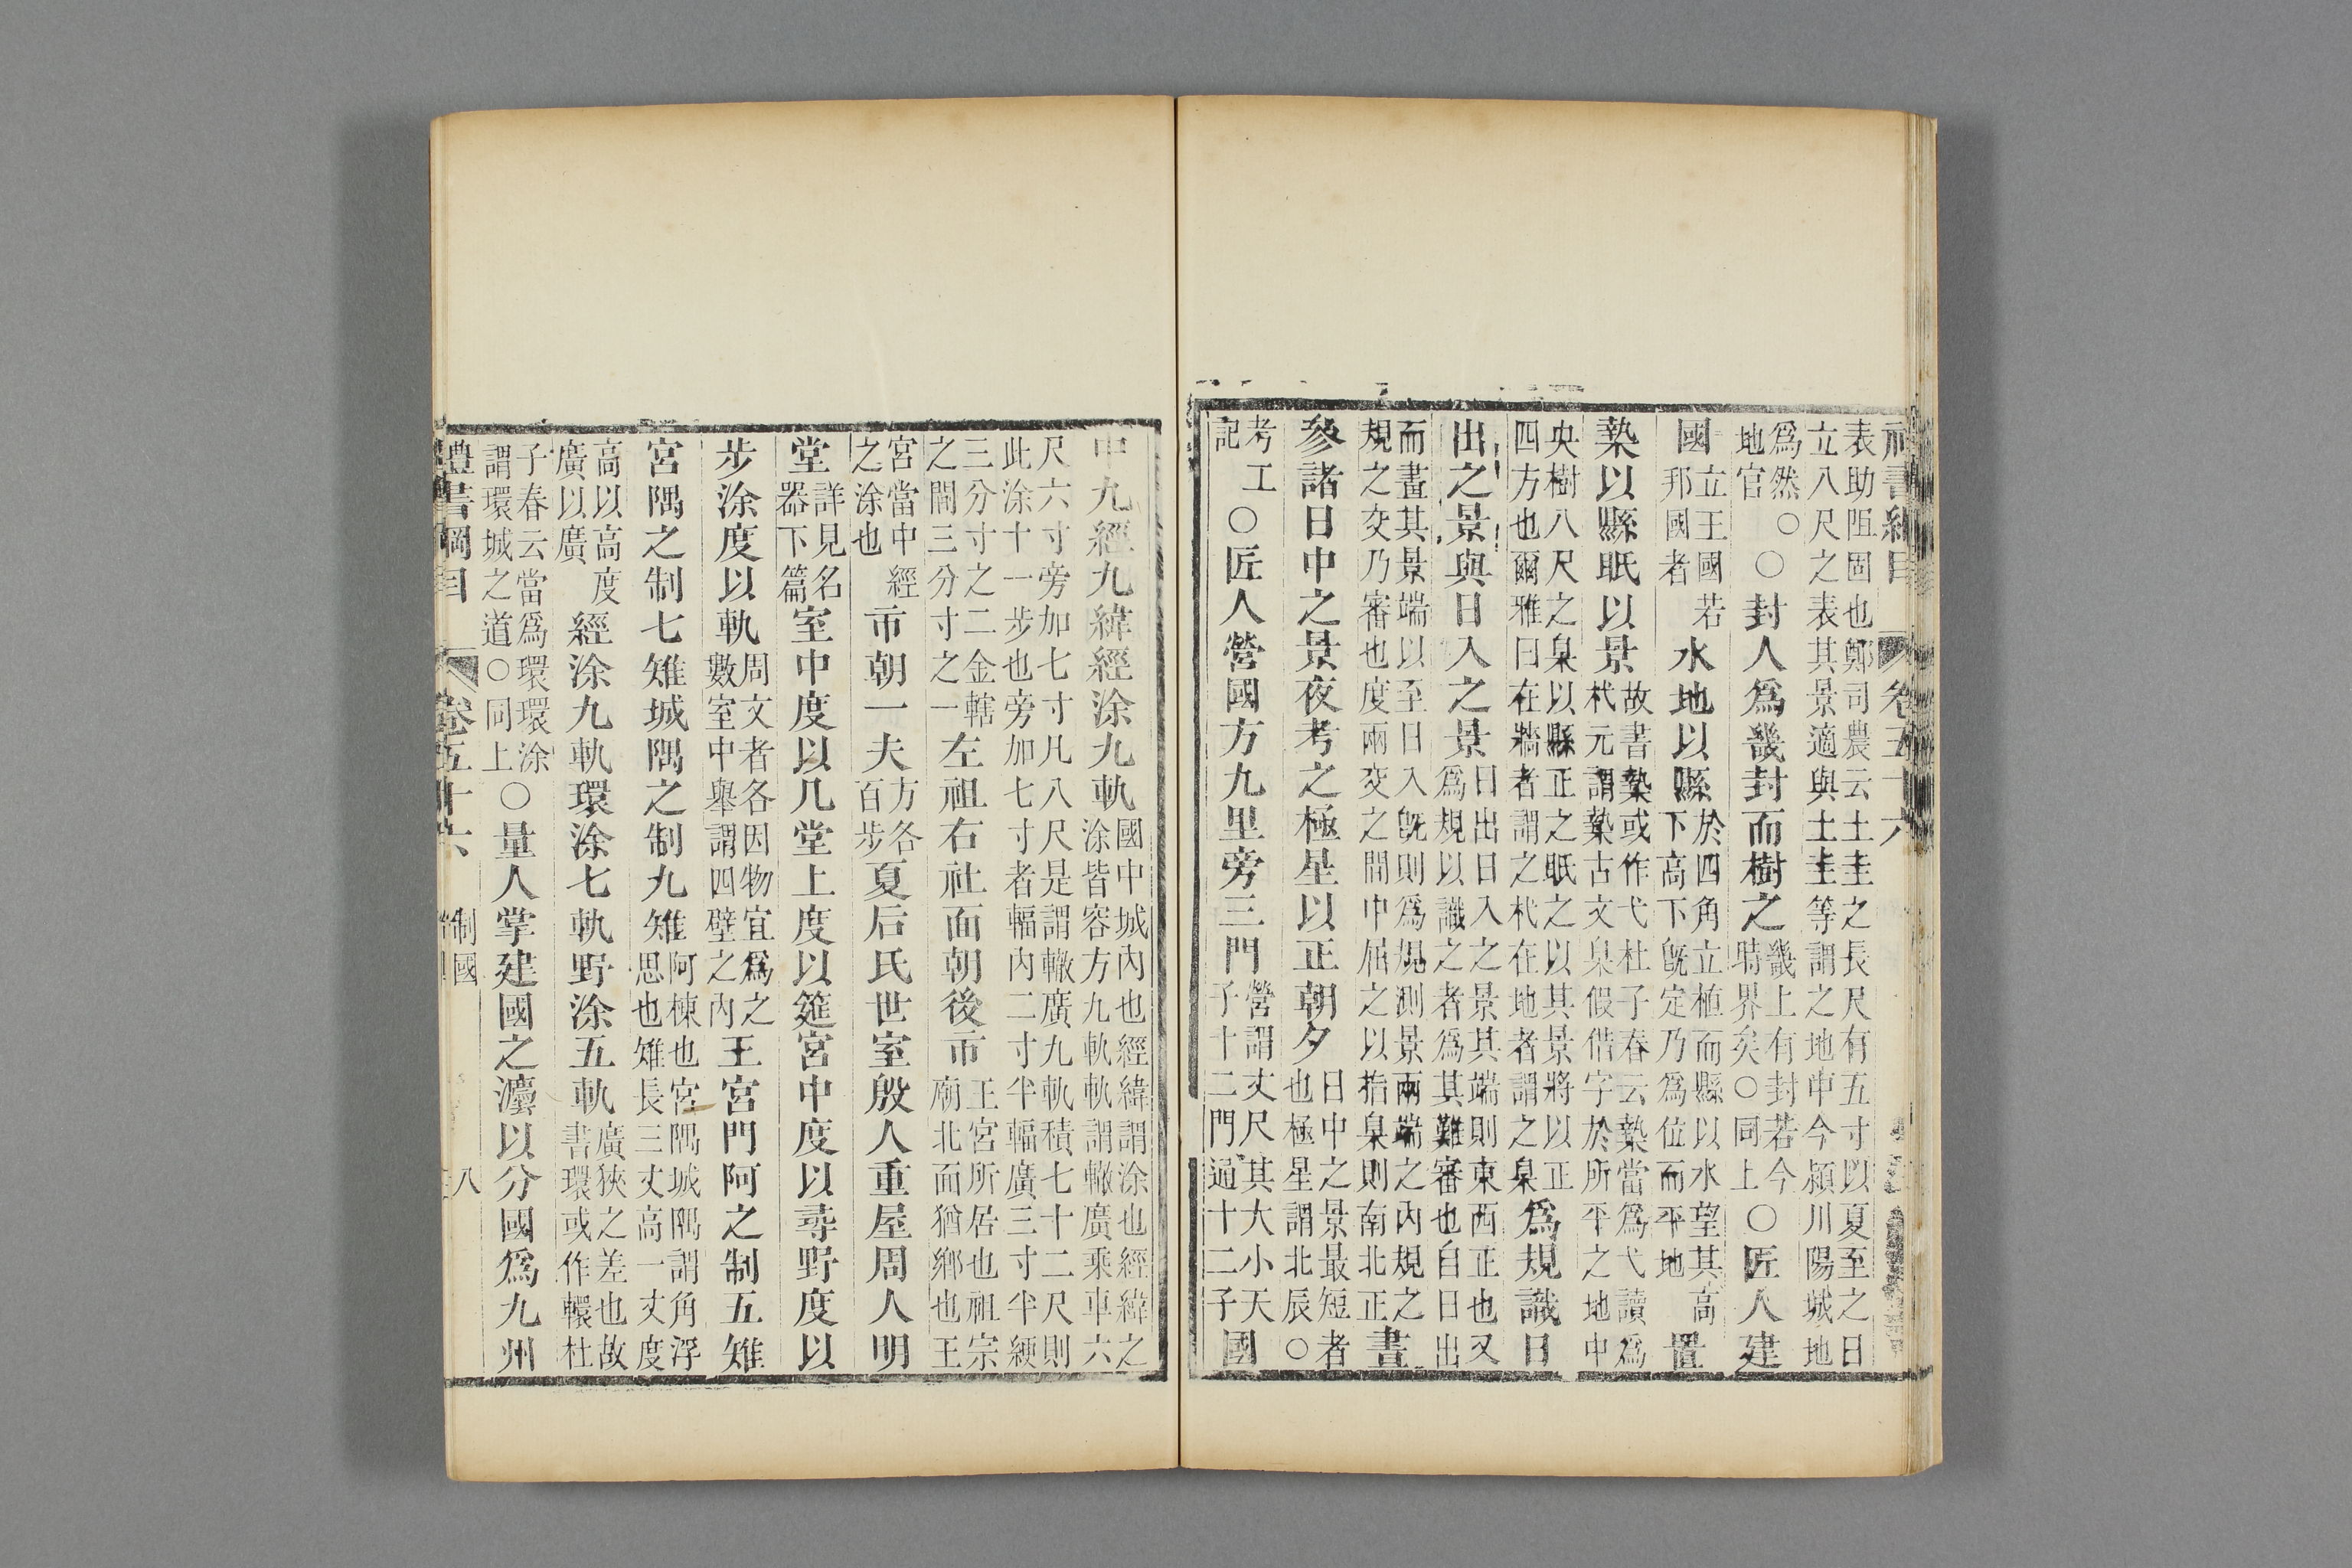 禮書綱目 卷五十六
表助阻固也鄭司農云土圭之長尺有五寸以夏至之日
立八尺之表其景適與土圭等謂之地中今潁川陽城地
爲然〇地官〇封人爲畿封而樹之畿上有封若今時界矣〇同上〇匠人建
國立王國若邦國者水地以縣於四角立植而縣以水望其高下高下旣定乃爲位而平地置
槷以縣眡以景故書槷或作弋杜子春云槷當爲弋讀爲杙元謂槷古文臬假借字於所平之地中
央樹八尺之臬以縣正之眡之以其景將以正四方也爾雅曰在牆者謂之杙在地者謂之臬爲規識日
出之景與日入之景日出日入之景其端則東西正也又爲規以識之者爲其難審也自日出
而畫其景端以至日入旣則爲規測景兩端之內規之規之交乃審也度兩交之間中屈之以指臬則南北正晝
參諸日中之景夜考之極星以正朝夕日中之景最短者也極星謂北辰〇
考工記〇匠人營國方九里旁三門營謂丈尺其大小天子十二門通十二子國
中九經九緯經涂九軌國中城內也經緯謂涂也經緯之涂皆容方九軌軌謂轍廣乘車六
尺六寸旁加七寸凡八尺是謂轍廣九軌積七十二尺則此涂十一步也旁加七寸者輻內二寸半輻廣三寸半綆
三分寸之二金轄之間三分寸之一左祖右社面朝後市王宮所居也祖宗廟北面猶鄉也王
宮當中經之涂也市朝一夫方各百步夏后氏世室殷人重屋周人明
堂詳見名器下篇室中度以几堂上度以筵宮中度以尋野度以
步涂度以軌周文者各因物宜爲之數室中舉謂四壁之內王宮門阿之制五雉
宮隅之制七雉城隅之制九雉阿棟也宮隅城隅謂角浮思也雉長三丈高一丈度
高以高度廣以廣經涂九軌環涂七軌野涂五軌廣狹之差也故書環或作轘杜
子春云當爲環環涂謂環城之道〇同上〇量人掌建國之灋以分國爲九州
禮書綱目 卷五十六 制國 八